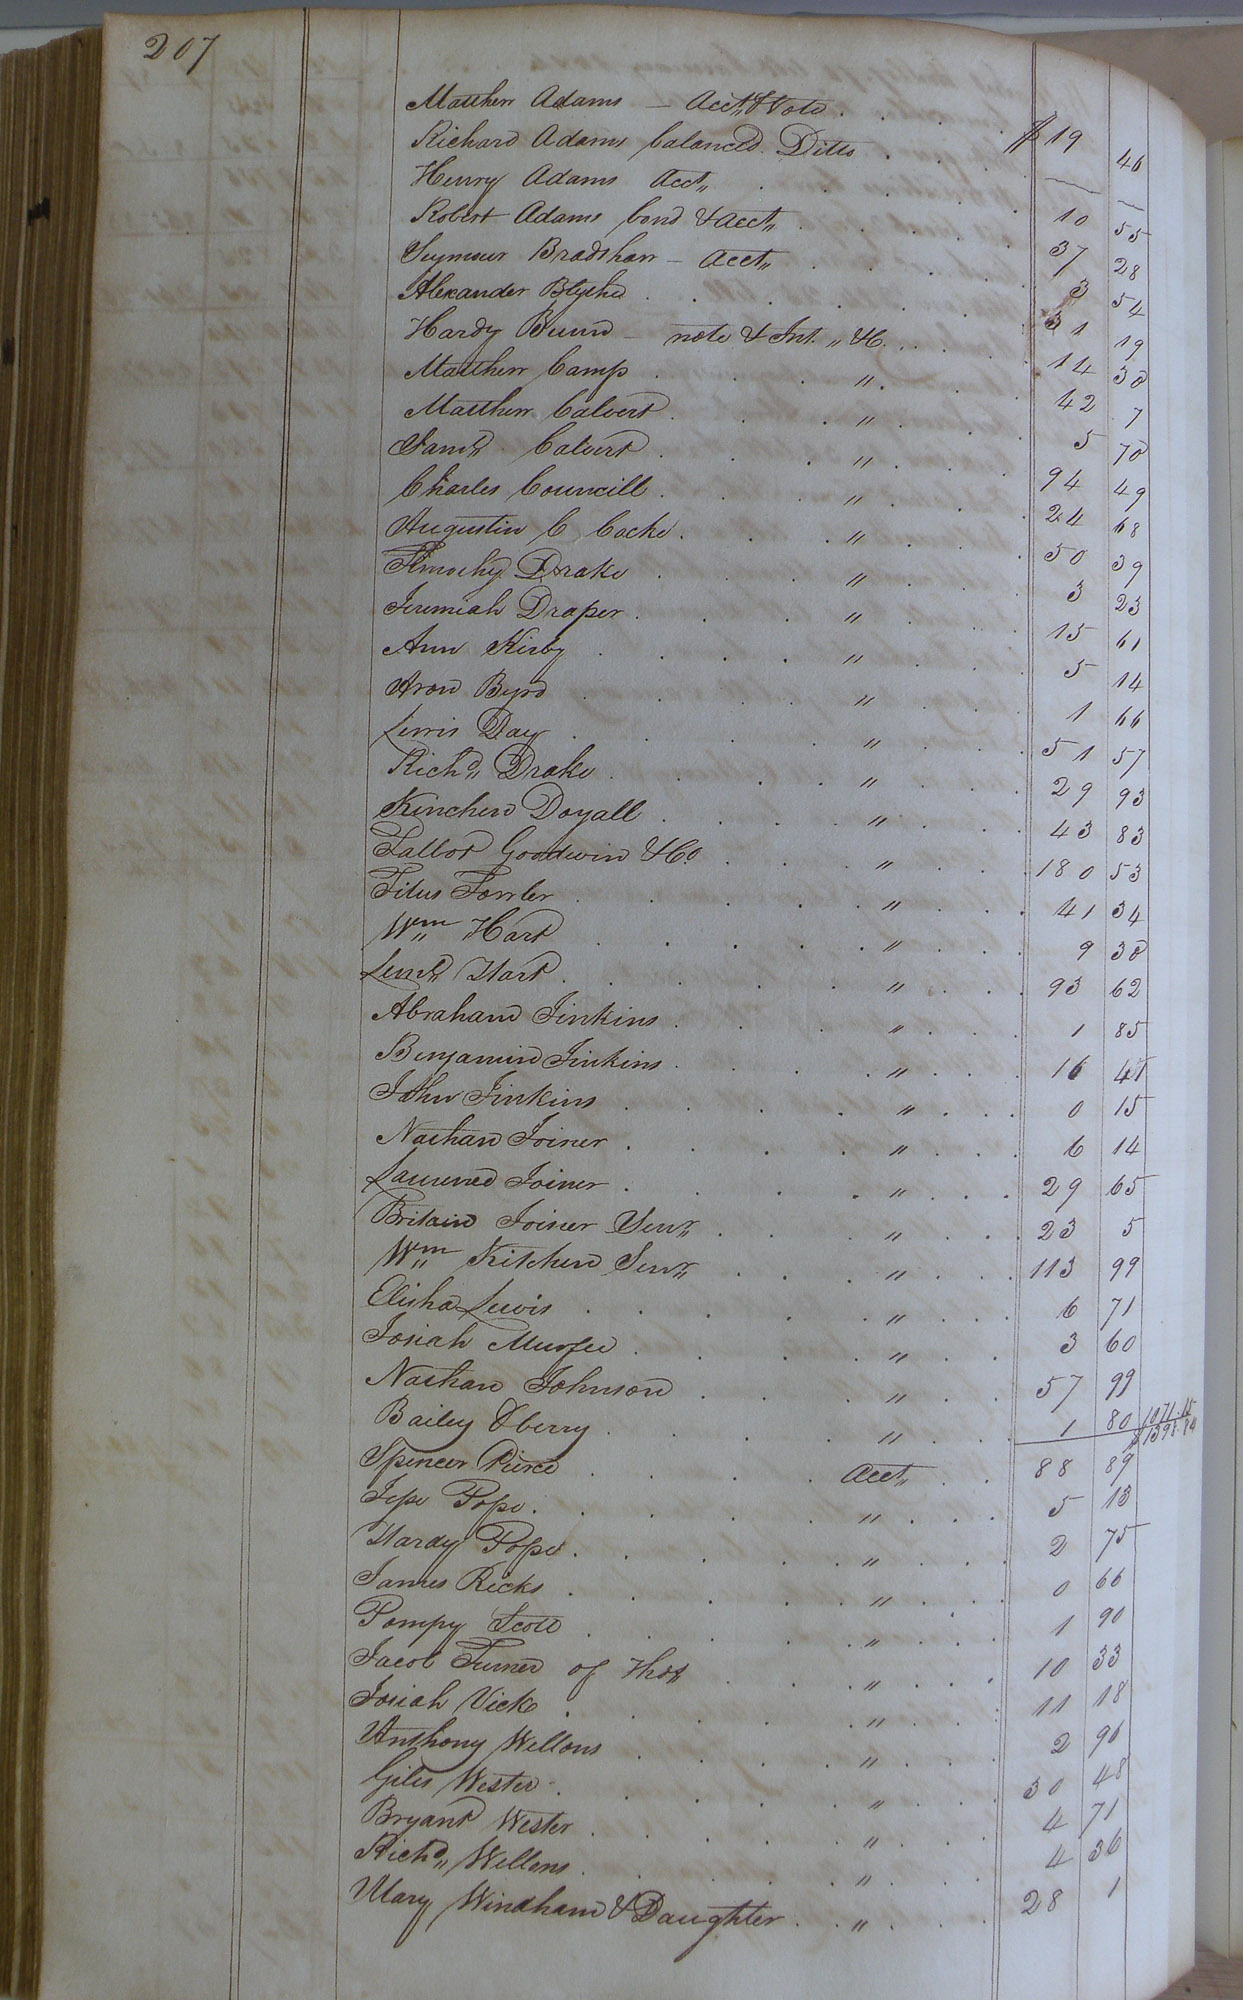 207
Matthew Adams — Acct,, & Note . . . $ 19 46
Richard Adams balanced Ditto . . — —
Henry Adams Acct,, . . . . 10 55
Robert Adams bond & Acct,, . . . 37 28
Seymour Bradshaw — Acct,, . . . 3 54
Alexander Blythe . . . . . 31 19
Hardy Bunn — note & Int. ,, &C. . . 14 30
Matthew Camp . . . ,, . . 42 7
Matthew Calvert . . . ,, . . 5 70
Saml,, Calvert . . . ,, . . 94 49
Charles Councill . . . ,, . . 24 68
Augustin C Cocke . . . ,, . . 50 39
Timothy Drake . . . ,, . . 3 23
Jeremiah Draper . . . ,, . . 15 61
Ann Kirby . . . ,, . . 5 14
Aron Byrd . . . ,, . . 1 66
Lewis Day . . . ,, . . 51 57
Richd,, Drake . . . ,, . . 29 93
Kinchen Doyall . . . ,, . . 43 83
Talbot Goodwin & Co . . ,, . . 180 53
Titus Fowler . . . ,, . . 41 34
Wm,, Hart . . . ,, . . 9 30
Leml,, Hart . . . ,, . . 93 62
Abraham Jinkins . . . ,, . . 1 85
Benjamin Jinkins . . . ,, . . 16
John Jinkins . . . ,, . . 0 15
Nathan Joiner . . . ,, . . 6 14
Lawrence Joiner . . . ,, . . 29 65
Britain Joiner Senr,, . . ,, . . 23 5
Wm,, Kitchen Senr,, . . ,, . . 113 99
Elisha Lewis . . . ,, . . 6 71
Josiah Murfee . . . ,, . . 3 60
Nathan Johnson . . . ,, . . 57 99
Bailey Oberry . . . ,, . . 1 80 1071.15
$1398.84
Spencer Pierce . . . Acct,, . . 88 89
Jesse Pope . . . ,, . . 5 13
Hardy Pope . . . ,, . . 2 75
James Ricks . . . ,, . . 0 66
Pompy Scott . . . ,, . . 1 90
Jacob Turner of Thos,, . . ,, . . 10 33
Josiah Vick . . . ,, . . 11 18
Anthony Wellons . . . ,, . . 2 96
Giles Wester . . . ,, . . 30 48
Bryant Wester . . . ,, . . 4 71
Richd,, Wellons . . . ,, . . 4 36
Mary Windham & Daughter . ,, . . 28 1